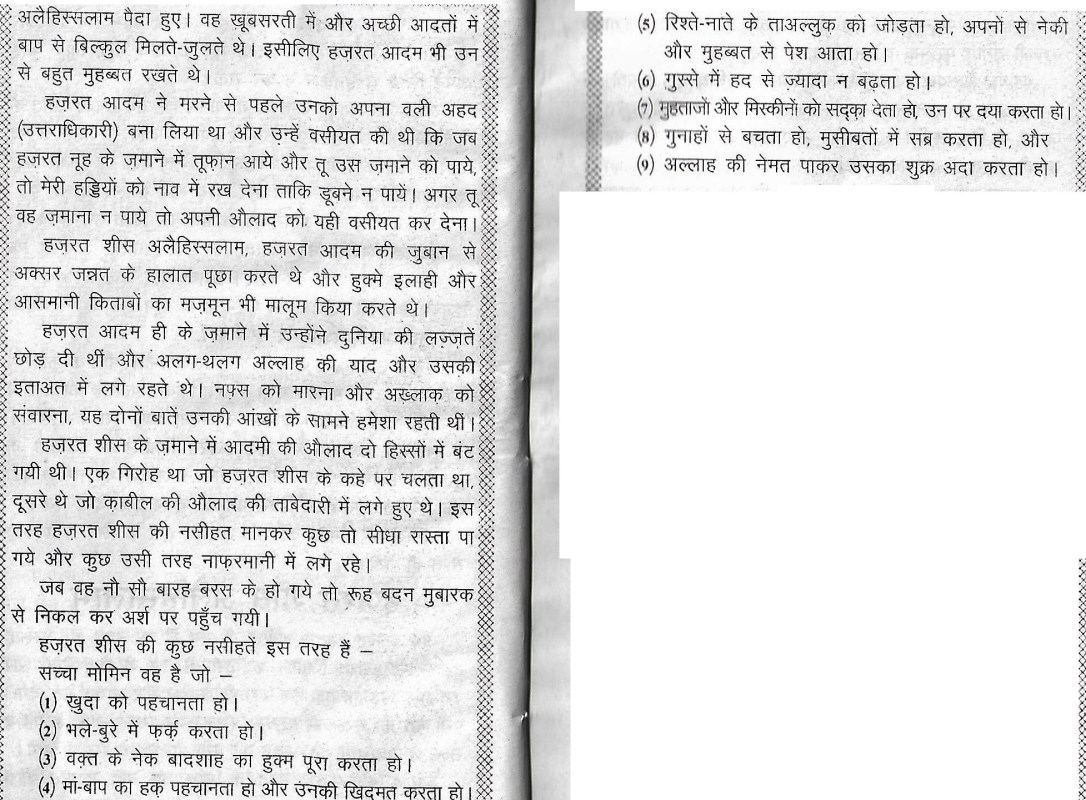 अलैहिस्सलाम पैदा हुए। वह ख़ूबसरती में और अच्छी आदतों में
बाप से बिल्कुल मिलते-जुलते थे। इसीलिए हज़रत आदम भी उन
से बहुत मुहब्बत रखते थे।
हज़रत आदम ने मरने से पहले उनको अपना वली अहद
(उत्तराधिकारी) बना लिया था और उन्हें वसीयत की थी कि जब
हज़रत नूह के ज़माने में तूफ़ान आये और तू उस ज़माने को पाये,
तो मेरी हड्डियों को नाव में रख देना ताकि डूबने न पायें। अगर तू
वह ज़माना न पाये तो अपनी औलाद को यही वसीयत कर देना।
हज़रत शीस अलैहिस्सलाम, हज़रत आदम की ज़ुबान से
अक्सर जन्नत के हालात पूछा करते थे और हुक्मे इलाही और
आसमानी किताबों का मज़मून भी मालूम किया करते थे।
हज़रत आदम ही के ज़माने में उन्होंने दुनिया की लज़्ज़तें
छोड़ दी थीं और अलग-थलग अल्लाह की याद और उसकी
इताअत में लगे रहते थे। नफ़्स को मारना और अख़्लाक़ को
संवारना, यह दोनों बातें उनकी आंखों के सामने हमेशा रहती थीं।
हज़रत शीस के ज़माने में आदमी की औलाद दो हिस्सों में बंट
गयी थी। एक गिरोह था जो हज़रत शीस के कहे पर चलता था,
दूसरे थे जो क़ाबील की औलाद की ताबेदारी में लगे हुए थे। इस
तरह हज़रत शीस की नसीहत मानकर कुछ तो सीधा रास्ता पा
गये और कुछ उसी तरह नाफ़रमानी में लगे रहे।
जब वह नौ सौ बारह बरस के हो गये तो रूह बदन मुबारक
से निकल कर अर्श पर पहुँच गयी।
हज़रत शीस की कुछ नसीहतें इस तरह हैं –
सच्चा मोमिन वह है जो –
(1) ख़ुदा को पहचानता हो।
(2) भले-बुरे में फ़र्क़ करता हो।
(3) वक़्त के नेक बादशाह का हुक्म पूरा करता हो।
(4) मां-बाप का हक़ पहचानता हो और उनकी ख़िदमत करता हो।
(5) रिश्ते-नाते के ताअल्लुक़ को जोड़ता हो, अपनों से नेकी
और मुहब्बत से पेश आता हो।
(6) गुस्से में हद से ज़्यादा न बढ़ता हो।
(7) मुहताजों और मिस्कीनों को सद्क़ा देता हो, उन पर दया करता हो।
(8) गुनाहों से बचता हो, मुसीबतों में सब्र करता हो, और
(9) अल्लाह की नेमत पाकर उसका शुक्र अदा करता हो।